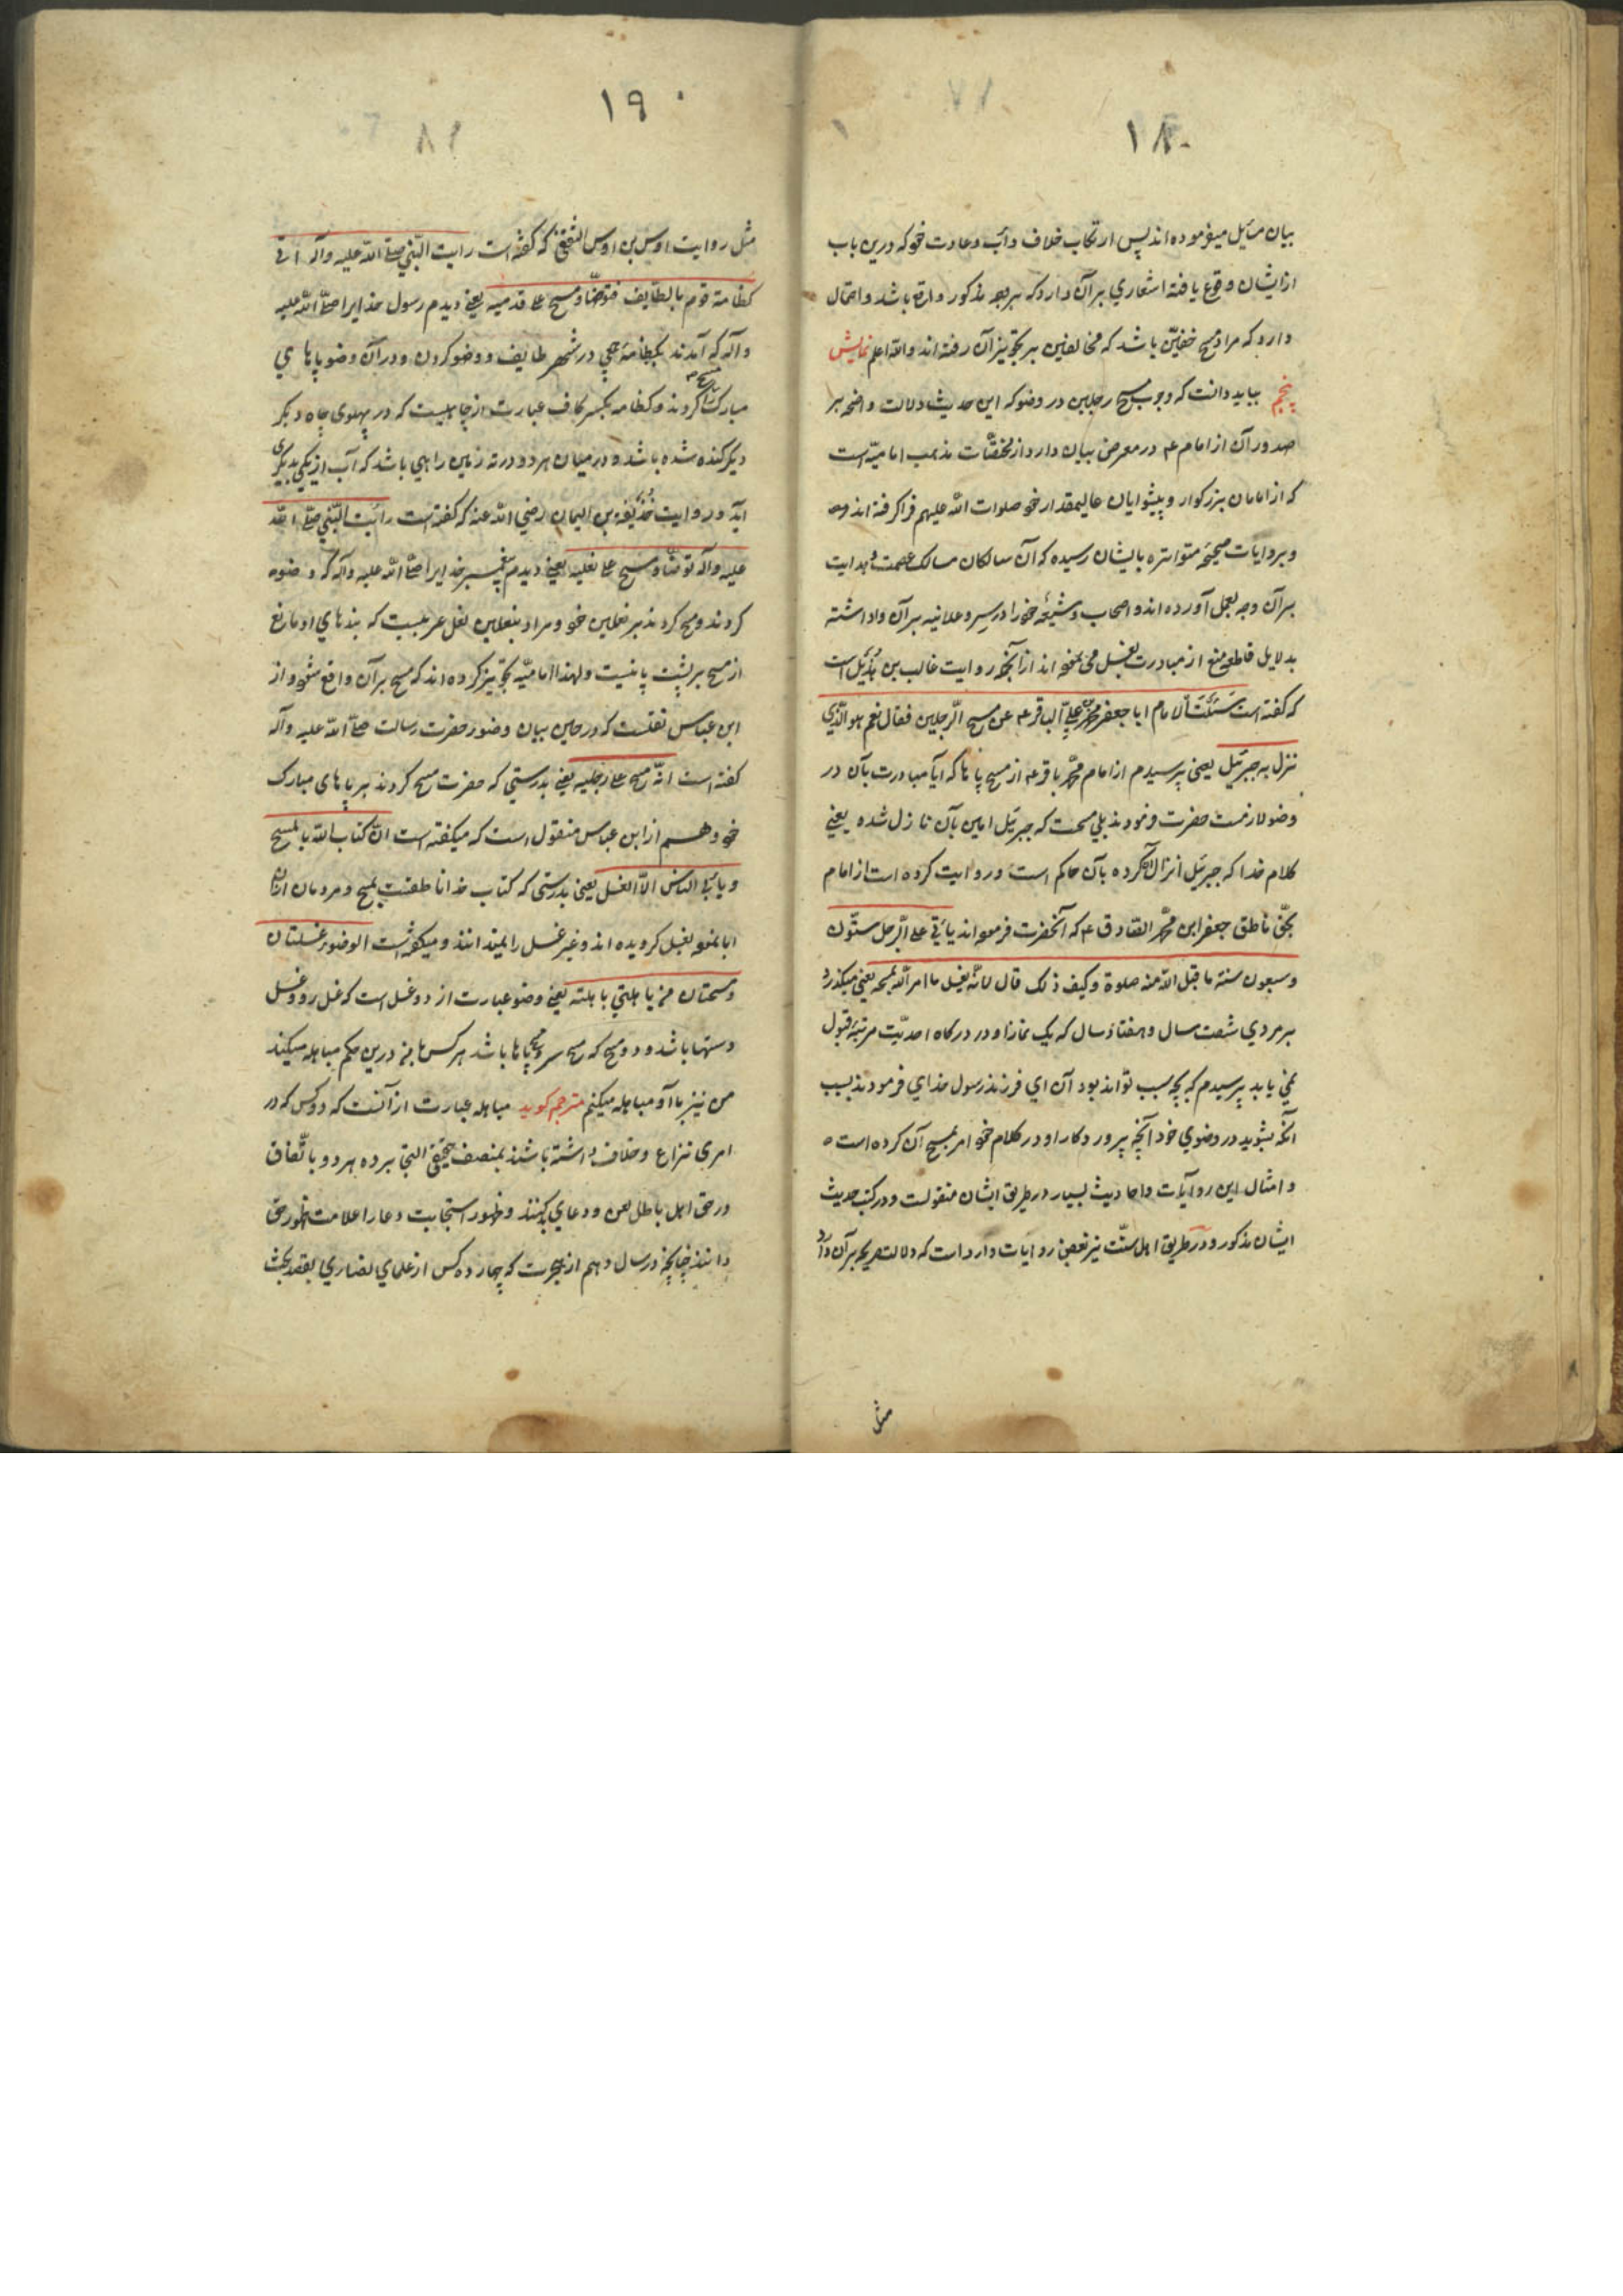 ۱۸۰
بیان مسایل میفرموده اند پس ارتکاب خلاف دأب وعادت خود که درین باب
ازایشان وقوع یافته اشعاری بر آن دارد که بر وجه مذکور وارد باشد واحتمال
دارد که مراد مسح خفین باشد که مخالفین بر تجویز آن رفته اند والله اعلم نمایش
پنجم بباید دانست که وجوب مسح رجلین در وضو که این حدیث دلالت واضحه بر
صدور آن از امام ع در معرض بیان دارد از مختصّات مذهب امامیّه است
که از امامان بزرکوار وپیشوایان عالیمقدار خود صلوات الله علیهم فراکرفته اند
وبروایات صحیحه متواتره بایشان رسیده که آن سالکان مسالک عصمت وهدایت
بر آن وجه بعمل آورده اند واصحاب وشیعه خود را در سر وعلانیه بر آن واداشته
بدلایل قاطعه منع از مبادرت بغسل می نموده اند از آنجمله روایت غالب بن هُذَیل است
که گفته است سَئَلتُ الامام ابا جعفر محمّد بن علیّ الباقر ع عن مسح الرّجلین فقال نعم هو الّذی
نزل به جبرئیل یعنی پرسیدم از امام محمّد باقر ع از مسح پاها که آیا مبادرت بآن در
وضو لازمست حضرت فرمودند بلی مسحست که جبرئیل امین بآن نازل شده یعنی
کلام خدا که جبرئیل انزال آن کرده بآن حاکم است وروایت کرده است از امام
بحقّ ناطق جعفر ابن محمّد الصّادق ع که آنحضرت فرموده اند یأتی علی الرّجل ستّون
وسبعون سنة ما قبل الله منه صلوة وکیف ذلک قال لانّه یغسل ما امر الله بمسحه یعنی میکذرد
بر مردی شصت سال وهفتاد سال که یک نماز او در درکاه احدیّت مرتبه قبول
نمی یابد پرسیدم که بچه سبب تواند بود آن ای فرزند رسول خدای فرمودند بسبب
آنکه بشوید در وضوی خود آنچه پروردکار او در کلام خود امر بمسح آن کرده است
وامثال این روآیات واحادیث بسیار در طریق ایشان منقولست ودر کتب حدیث
ایشان مذکور ودر طریق اهل سنّت نیز بعضی روایات وارد است که دلالت صریحه بر آن دارد
مثل
۱۹۰
مثل روایت اوس بن اوس الثقفی که گفته است رایت النّبی صلّی الله علیه وآله اتی
کظامة قوم بالطّایف فتوضّأ ومسح علی قدمیه یعنی دیدم رسول خدایرا صلّی الله علیه
وآله که آمدند بکظامه جحی در شهر طایف ووضو کردن ودر آن وضو پاهای
مبارک را مسح کردند وکظامه بکسر کاف عبارت از چاهیست که در پهلوی چاه دیکر
دیکر کنده شده باشد ودر میان هر دو در ته زمین راهی باشد که آب از یکی بدیکری
آید ودر روایت حُذَیْفَه بن الیمان رضی الله عنه که گفته است رأیت النّبی صلّی الله
علیه وآله توضّأ ومسح علی نعلیه یعنی دیدم پیغمبر خدایرا صلّی الله علیه وآله که وضو
کردند ومسح کردند بر نعلین خود ومراد بنعلین نعل عربیست که بندهای او مانع
از مسح بر پشت پا نیست ولهذا امامیّه تجویز کرده اند که مسح بر آن واقع شود واز
ابن عباس نقلست که در حین بیان وضوء حضرت رسالت صلّی الله علیه وآله
گفته است انّه مسح علی رجلیه یعنی بدرستی که حضرت مسح کردند بر پاهای مبارک
خود وهم از ابن عباس منقول است که میکفته است انّ کتاب الله بالمسح
ویأبی النّاس الّا الغسل یعنی بدرستی که کتاب خدا ناطقست بمسح ومردمان ازان
ابا نموده بغسل کرویده اند وغیر غسل را نمیدانند ومیکفته است الوضوء غسلتان
ومسحتان من باهلنی باهلته یعنی وضو عبارت از دو غسل است که غسل رو وغسل
دستها باشد ودو مسح که مسح سر ومسح پاها باشد هر کس با من درین حکم مباهله میکند
من نیز با او مباهله میکنم مترجم کوید مباهله عبارت از آنست که دو کس که در
امری نزاع وخلاف داشته باشند بمنصف حقیقی التجا برده هر دو باتّفاق
در حق اهل باطل لعن ودعای بد کنند وظهور استجابت دعا را علامت ظهور حق
دانند چنانچه در سال دهم از هجرت که چهارده کس از علمای نصاری بقصد بحث